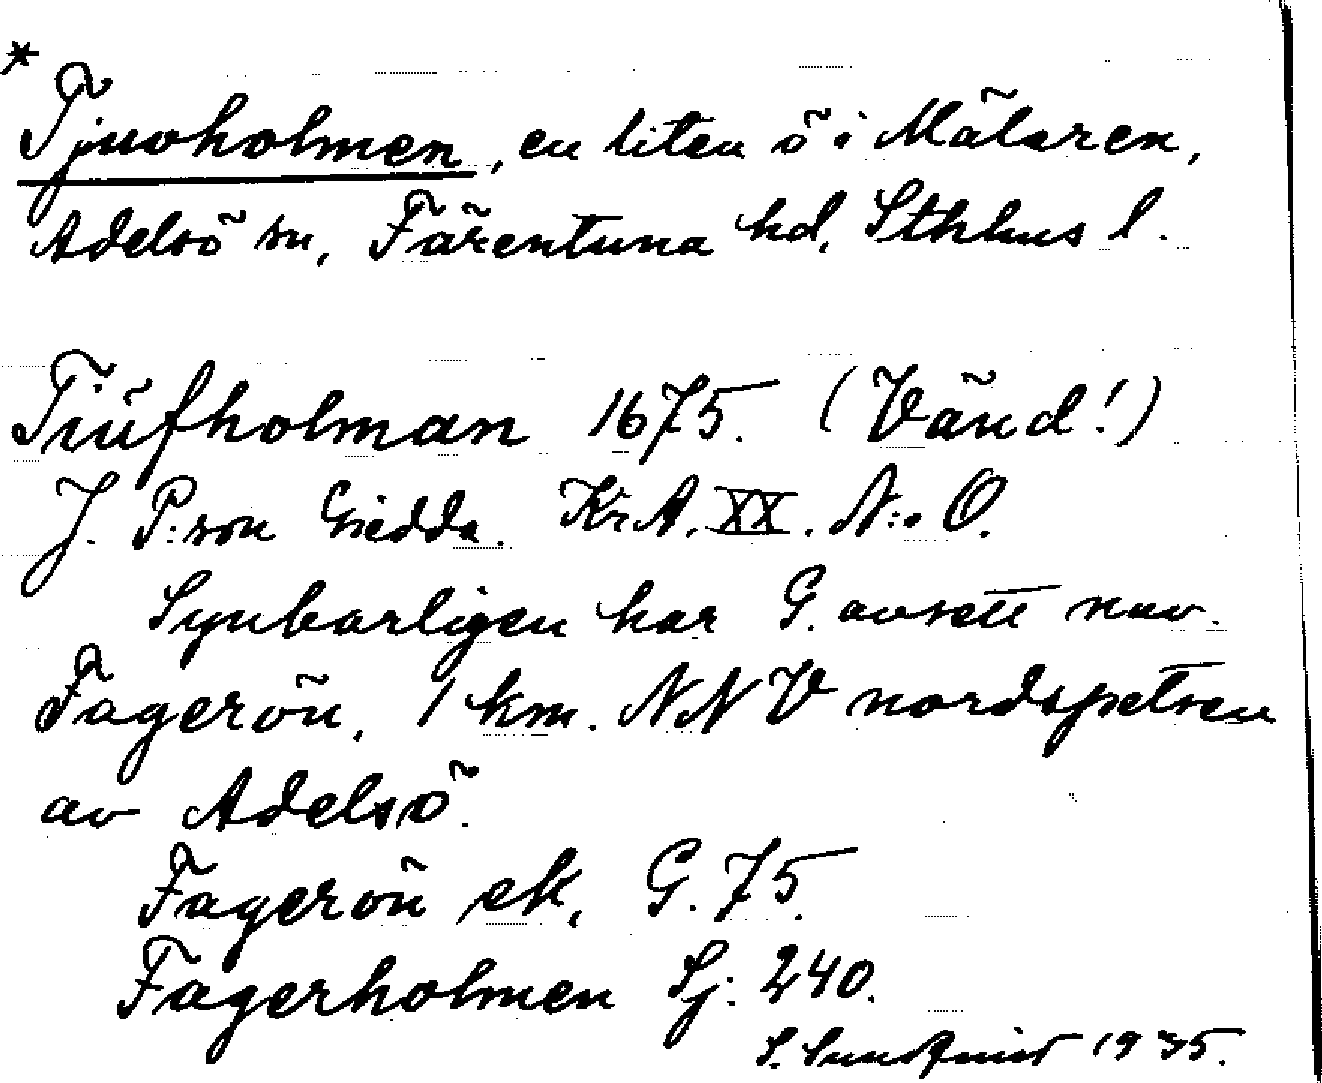 * Tjuvholmen, en liten ö i Mälaren,
Adelsö sn, Färentuna hd, Sthlms l.
Tiüfholman 1675. (Vänd!)
J. P:son Giedda. Kr.A. XX. N:o O.
Synbarligen har G. avsett nuv.
Fagerön, 1 km. NNV nordspetsen
av Adelsö.
Fagerön ek. G. 75.
Fagerholmen Sj: 240.
S. Sundqvist 1935.